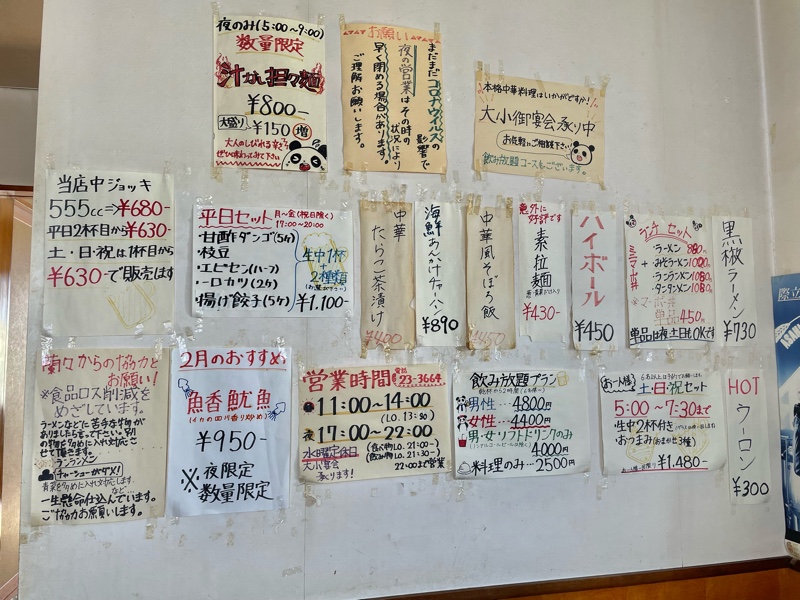 夜のみ(5:00~9:00)
数量限定
汁なし担々麺
¥800-
大盛り ¥150 増
大人のしびれる辛さ
ぜひ味わってみて下さい
お願い
まだまだコロナウイルスの
影響で
夜の営業はその時の
状況により
早く閉める場合があります。
ご理解お願いします。
本格中華料理はいかがですか!
大小御宴会承り中
お気軽にご相談下さい!
飲み放題コースもございます。
当店中ジョッキ
555cc⇒¥680-
平日2杯目から¥630-
土・日・祝は1杯目から
¥630-で販売します
平日セット 月~金(祝日除く)
17:00~20:00
・甘酢ダンゴ(5ヶ)
・枝豆
・エビセン(ハーフ)
・一口カツ(2ヶ)
・揚げ餃子(5ヶ)
生中1杯
+
2種類
(お選び下さい)
¥1.100-
中華
たらこ茶漬け
¥400
海鮮あんかけチャーハン
¥890
中華風そぼろ飯
¥450
意外に
好評です
素拉麺
¥430-
ハイボール
¥450
ランチセット
ラーメン 880
+ みそラーメン 1020
ランランメン 1080
タンタンメン 1080
※マーボー丼
単品 450
単品は夜、土日もOKです
黒椒ラーメン
¥730
蘭々からの協力と
お願い!
※食品ロス削減を
めざしています。
ラーメンなどに苦手な物が
ありましたら言って下さい。別
の物と
させて頂きます。
ランランメン
チャーシューがダメ!
など
一生懸命仕込んでいます。
ご協力お願いします。
2月のおすすめ
魚香魷魚
(イカの四川香り炒め)
¥950-
※夜限定
数量限定
営業時間 電話
23-3664
11:00~14:00
(LO.13:30)
夜17:00~22:00
水曜定休日 (食べ物LO.21:00-)
(飲み物LO.21:30-)
大小宴会
承ります! 22:00まで営業
飲み放題プラン
男性… 4800円
女性… 4400
男・女ソフトドリンクのみ
4.000円
料理のみ… 2500円
お一人様
土・日・祝セット
5:00~7:30まで
・生中2杯付き
・おつまみ(おまかせ3種)
¥1.480-
HOT
ウーロン
¥300